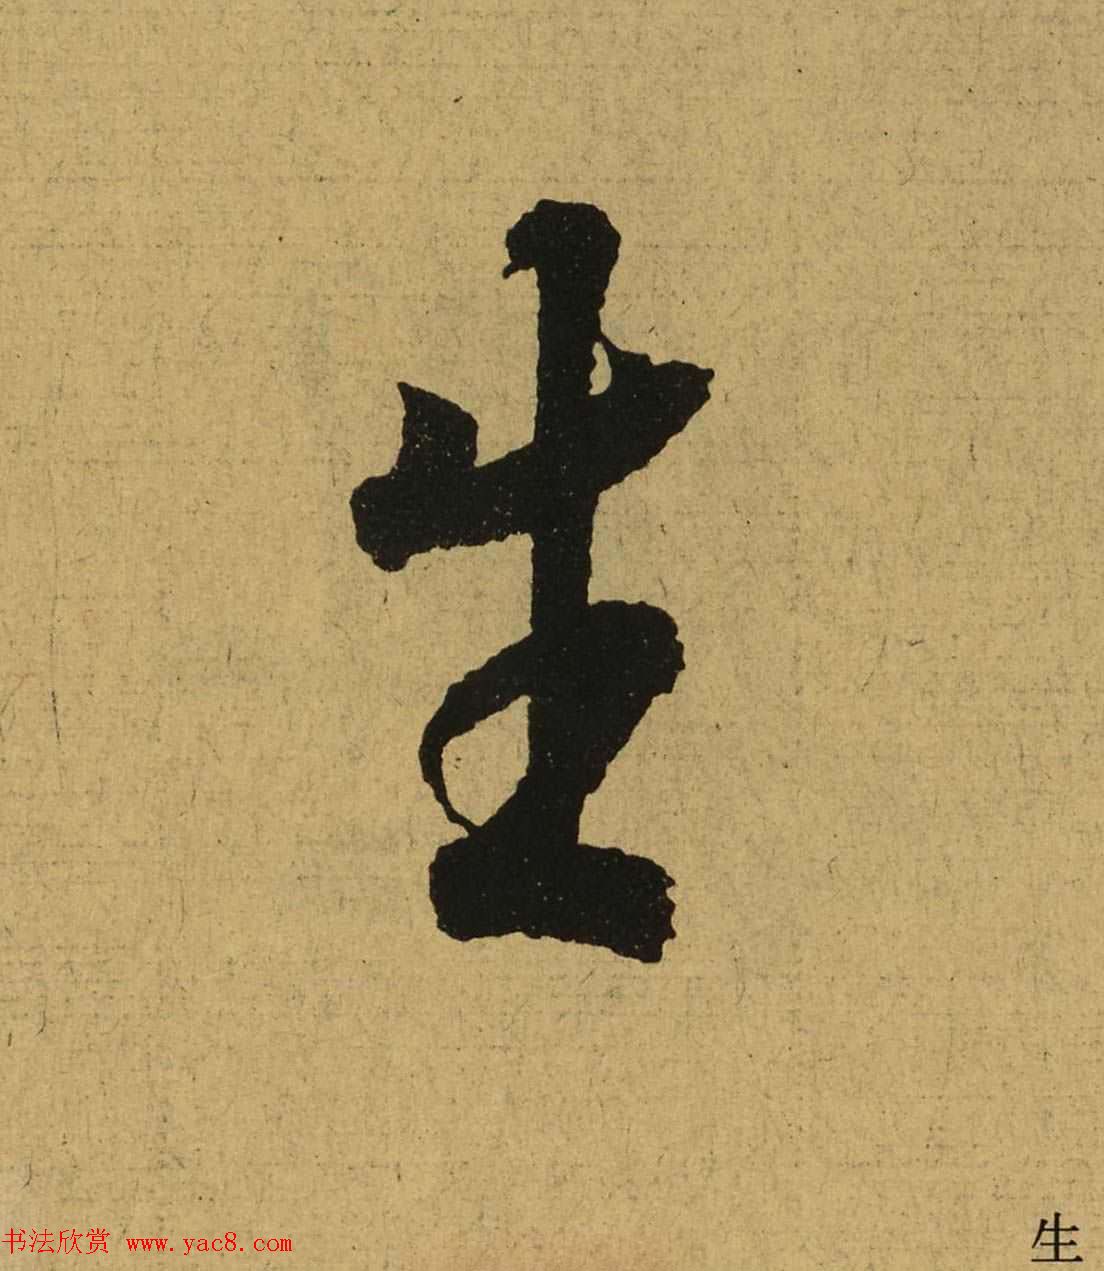 生
书法欣赏 www.yac8.com
生